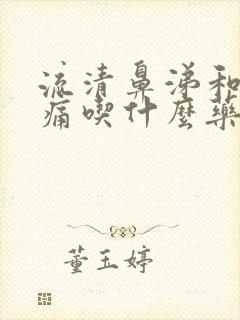 流清鼻涕和
痛喫什麼藥
董玉婷